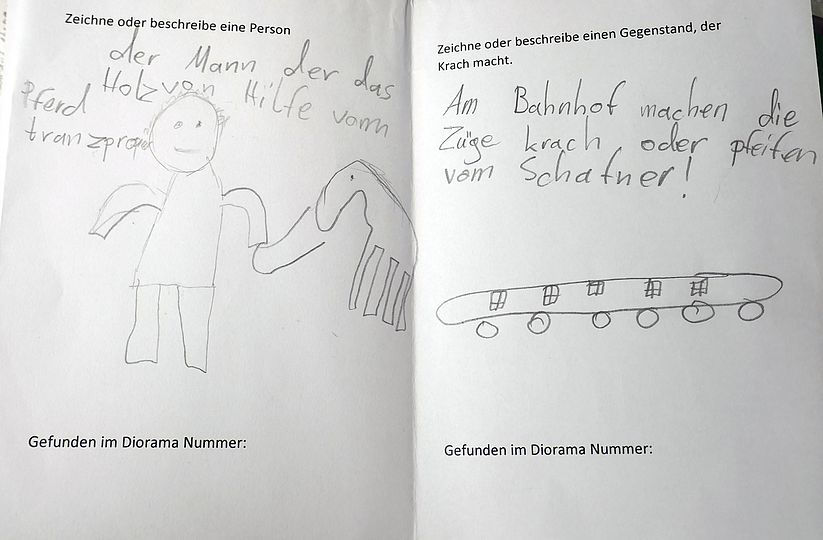 Zeichne oder beschreibe eine Person
der Mann der das
Holz von Hilfe vom
Pferd
Gefunden im Diorama Nummer:
Zeichne oder beschreibe einen Gegenstand, der
Krach macht.
Am Bahnhof machen die
Züge krach oder pfeifen
vom Schafner!
Gefunden im Diorama Nummer: